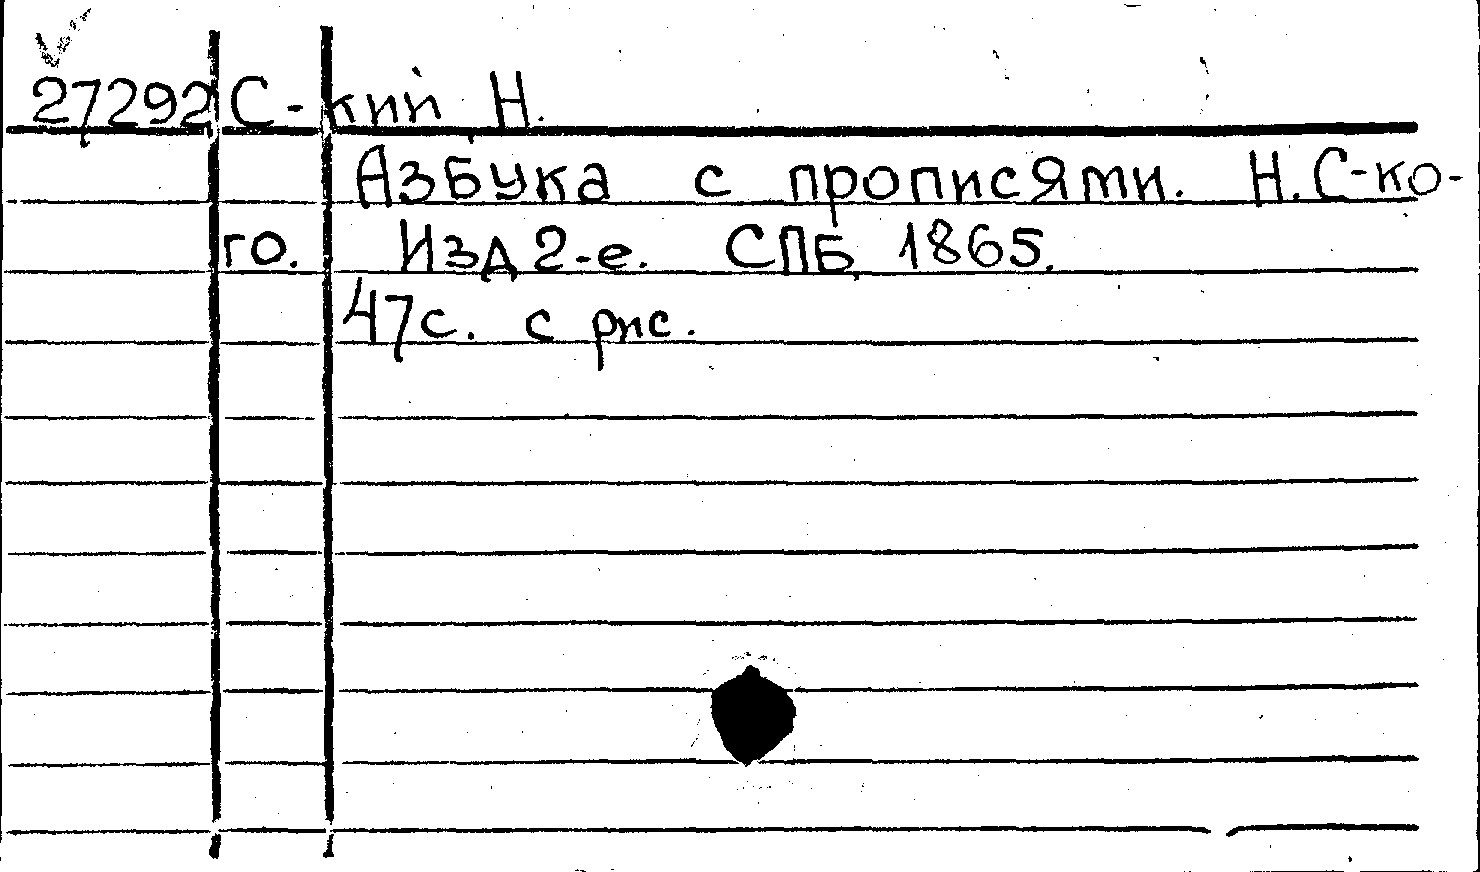 27292 С-кий Н.
Азбука с прописями. Н. С-ко-
го. Изд 2-е. СПБ, 1865.
47с. с рис.